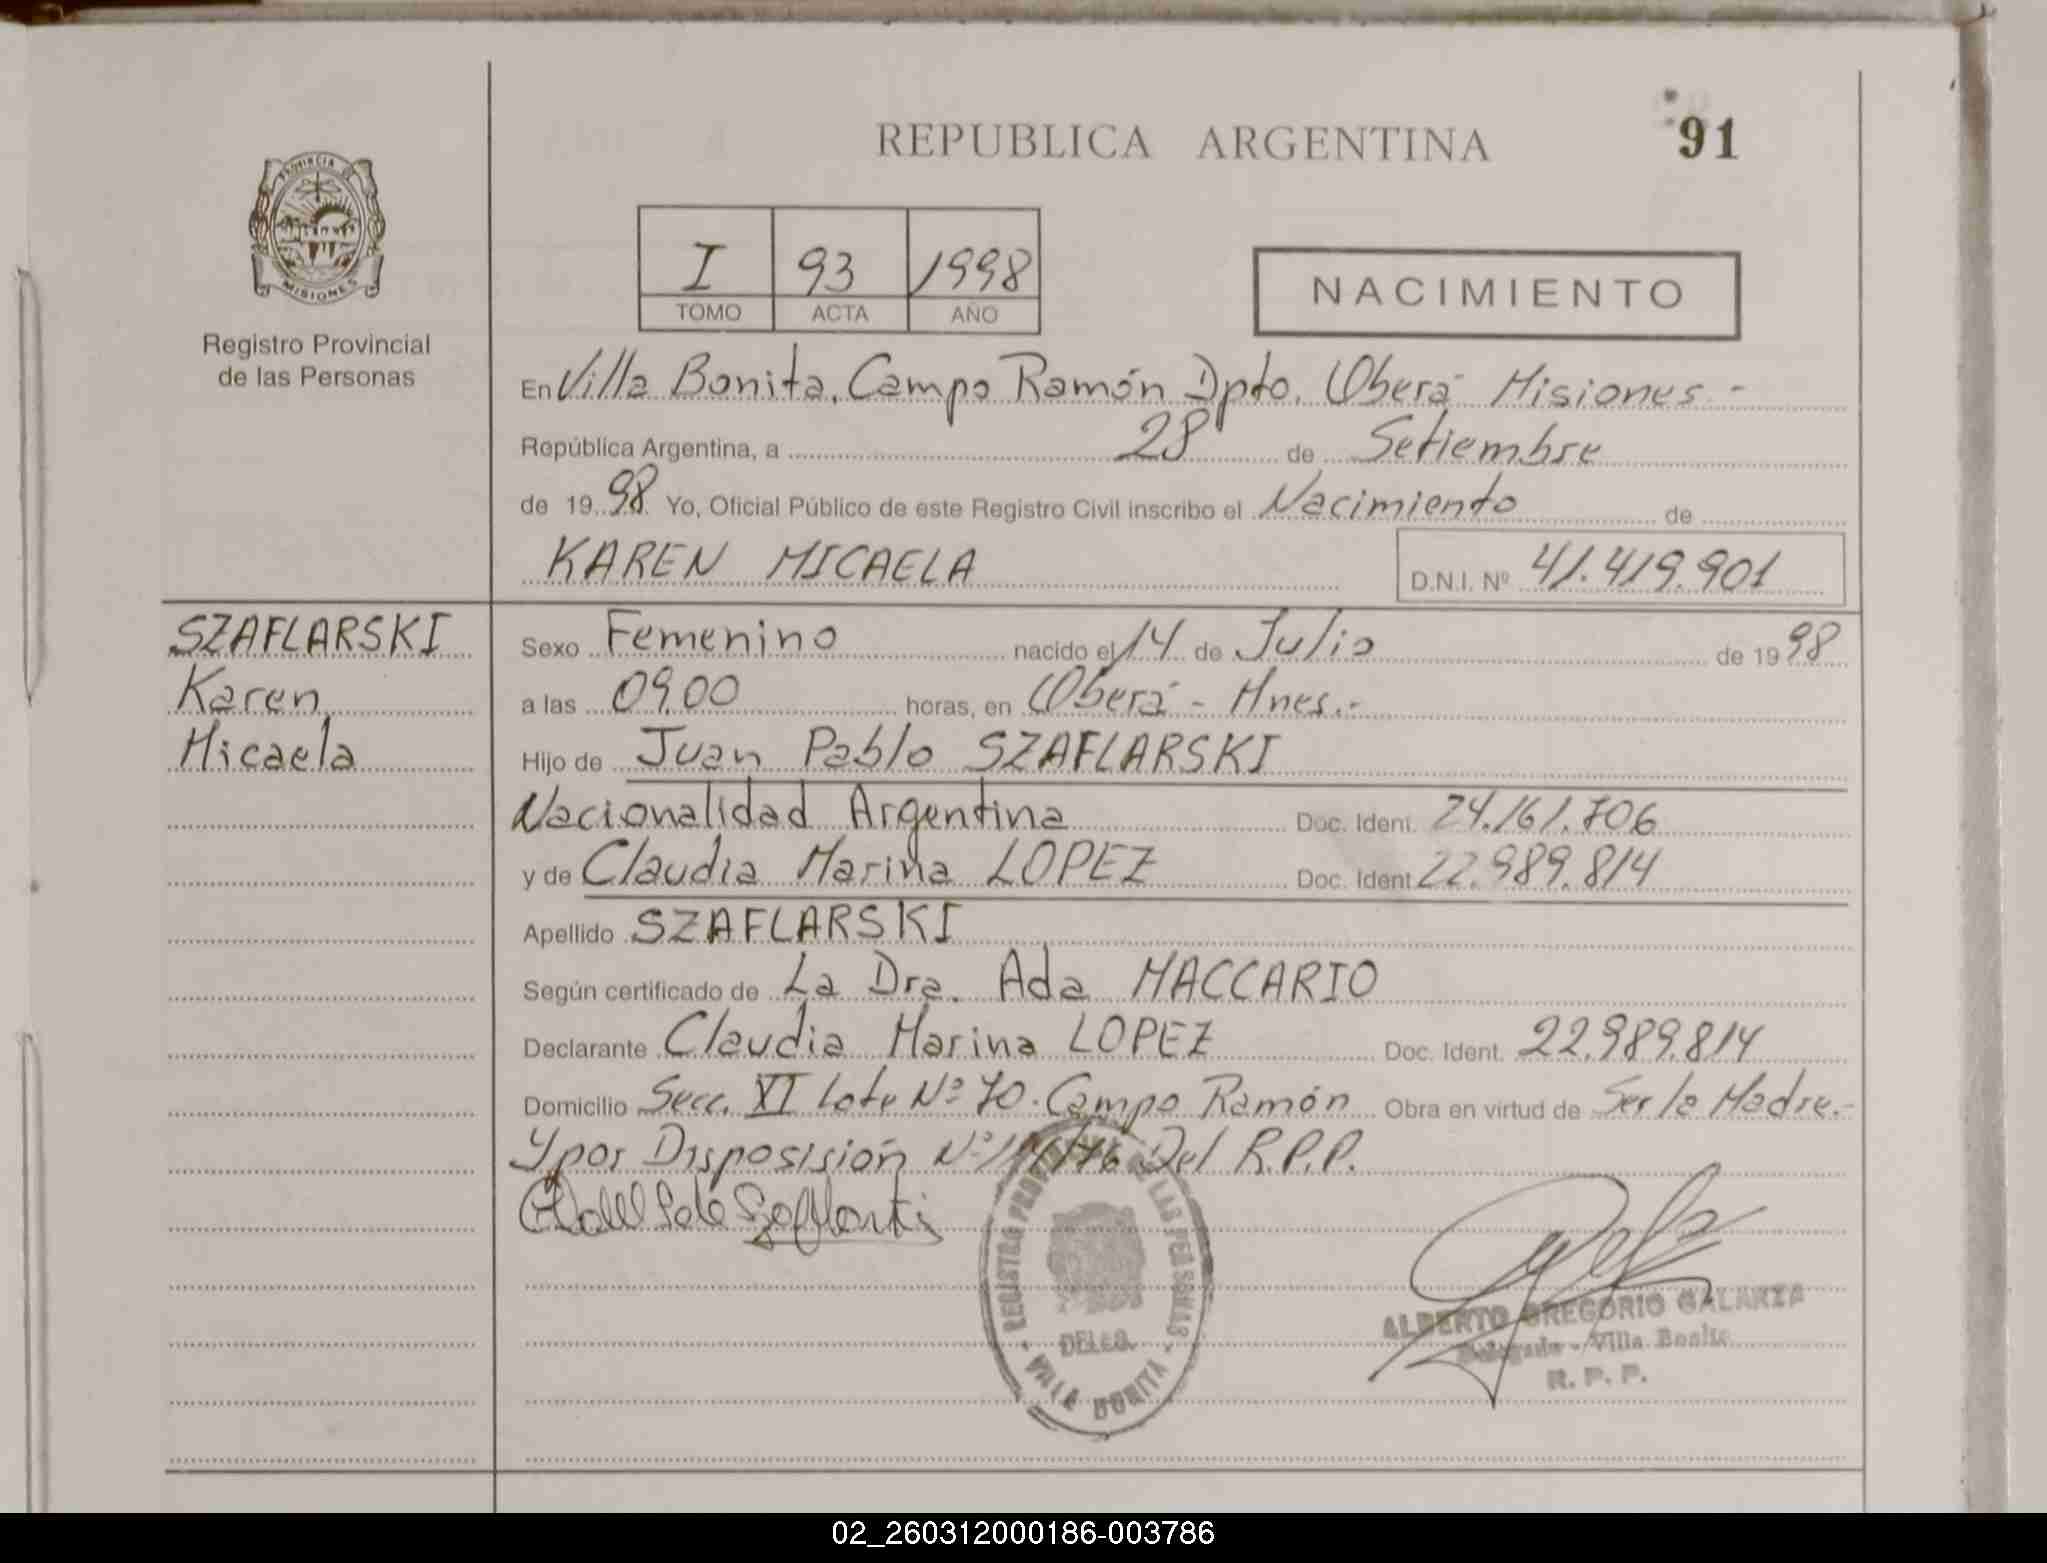 REPUBLICA ARGENTINA
91
PROVINCIA D
MISIONES
Registro Provincial
de las Personas
I 93 1998
TOMO ACTA AÑO
NACIMIENTO
En Villa Bonita, Campo Ramón Dpto. Oberá Misiones.-
República Argentina, a 28 de Setiembre
de 1998 Yo, Oficial Público de este Registro Civil inscribo el Nacimiento de
KAREN MICAELA D.N.I. Nº 41.419.901
SZAFLARSKI
Karen
Micaela
Sexo Femenino nacido el 14 de Julio de 1998
a las 09,00 horas, en Oberá - Mnes.-
Hijo de Juan Pablo SZAFLARSKI
Nacionalidad Argentina Doc. Ident. 24.161.706
y de Claudia Marina LOPEZ Doc. Ident 22.989.814
Apellido SZAFLARSKI
Según certificado de La Dra. Ada MACCARIO
Declarante Claudia Marina LOPEZ Doc. Ident. 22.989.814
Domicilio Secc. XI Lote Nº 70. Campo Ramón Obra en virtud de Ser la Madre.-
Y por Disposisión Nº /76 Del R.P.P.
REGISTRO DE LAS PERSONAS
DELEG.
VILLA BONITA
ALBERTO GREGORIO GALARZA
Delegado - Villa Bonita
R. P. P.
02_260312000186-003786